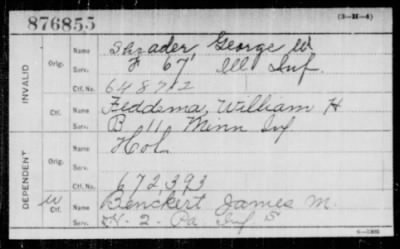 876855
(3-M-4)
INVALID
Orig.
Name Shrader George W
Serv. F 67' Ill Inf.
Ctf. No. 648712
Ctf.
Name Feddema, William H
Serv. B 11 Minn Inf
DEPENDENT
Orig.
Name Hob
Serv.
Ctf. No. 672,393
W Ctf.
Name Benckert James M.
Serv. H- 2- Pa Inf S